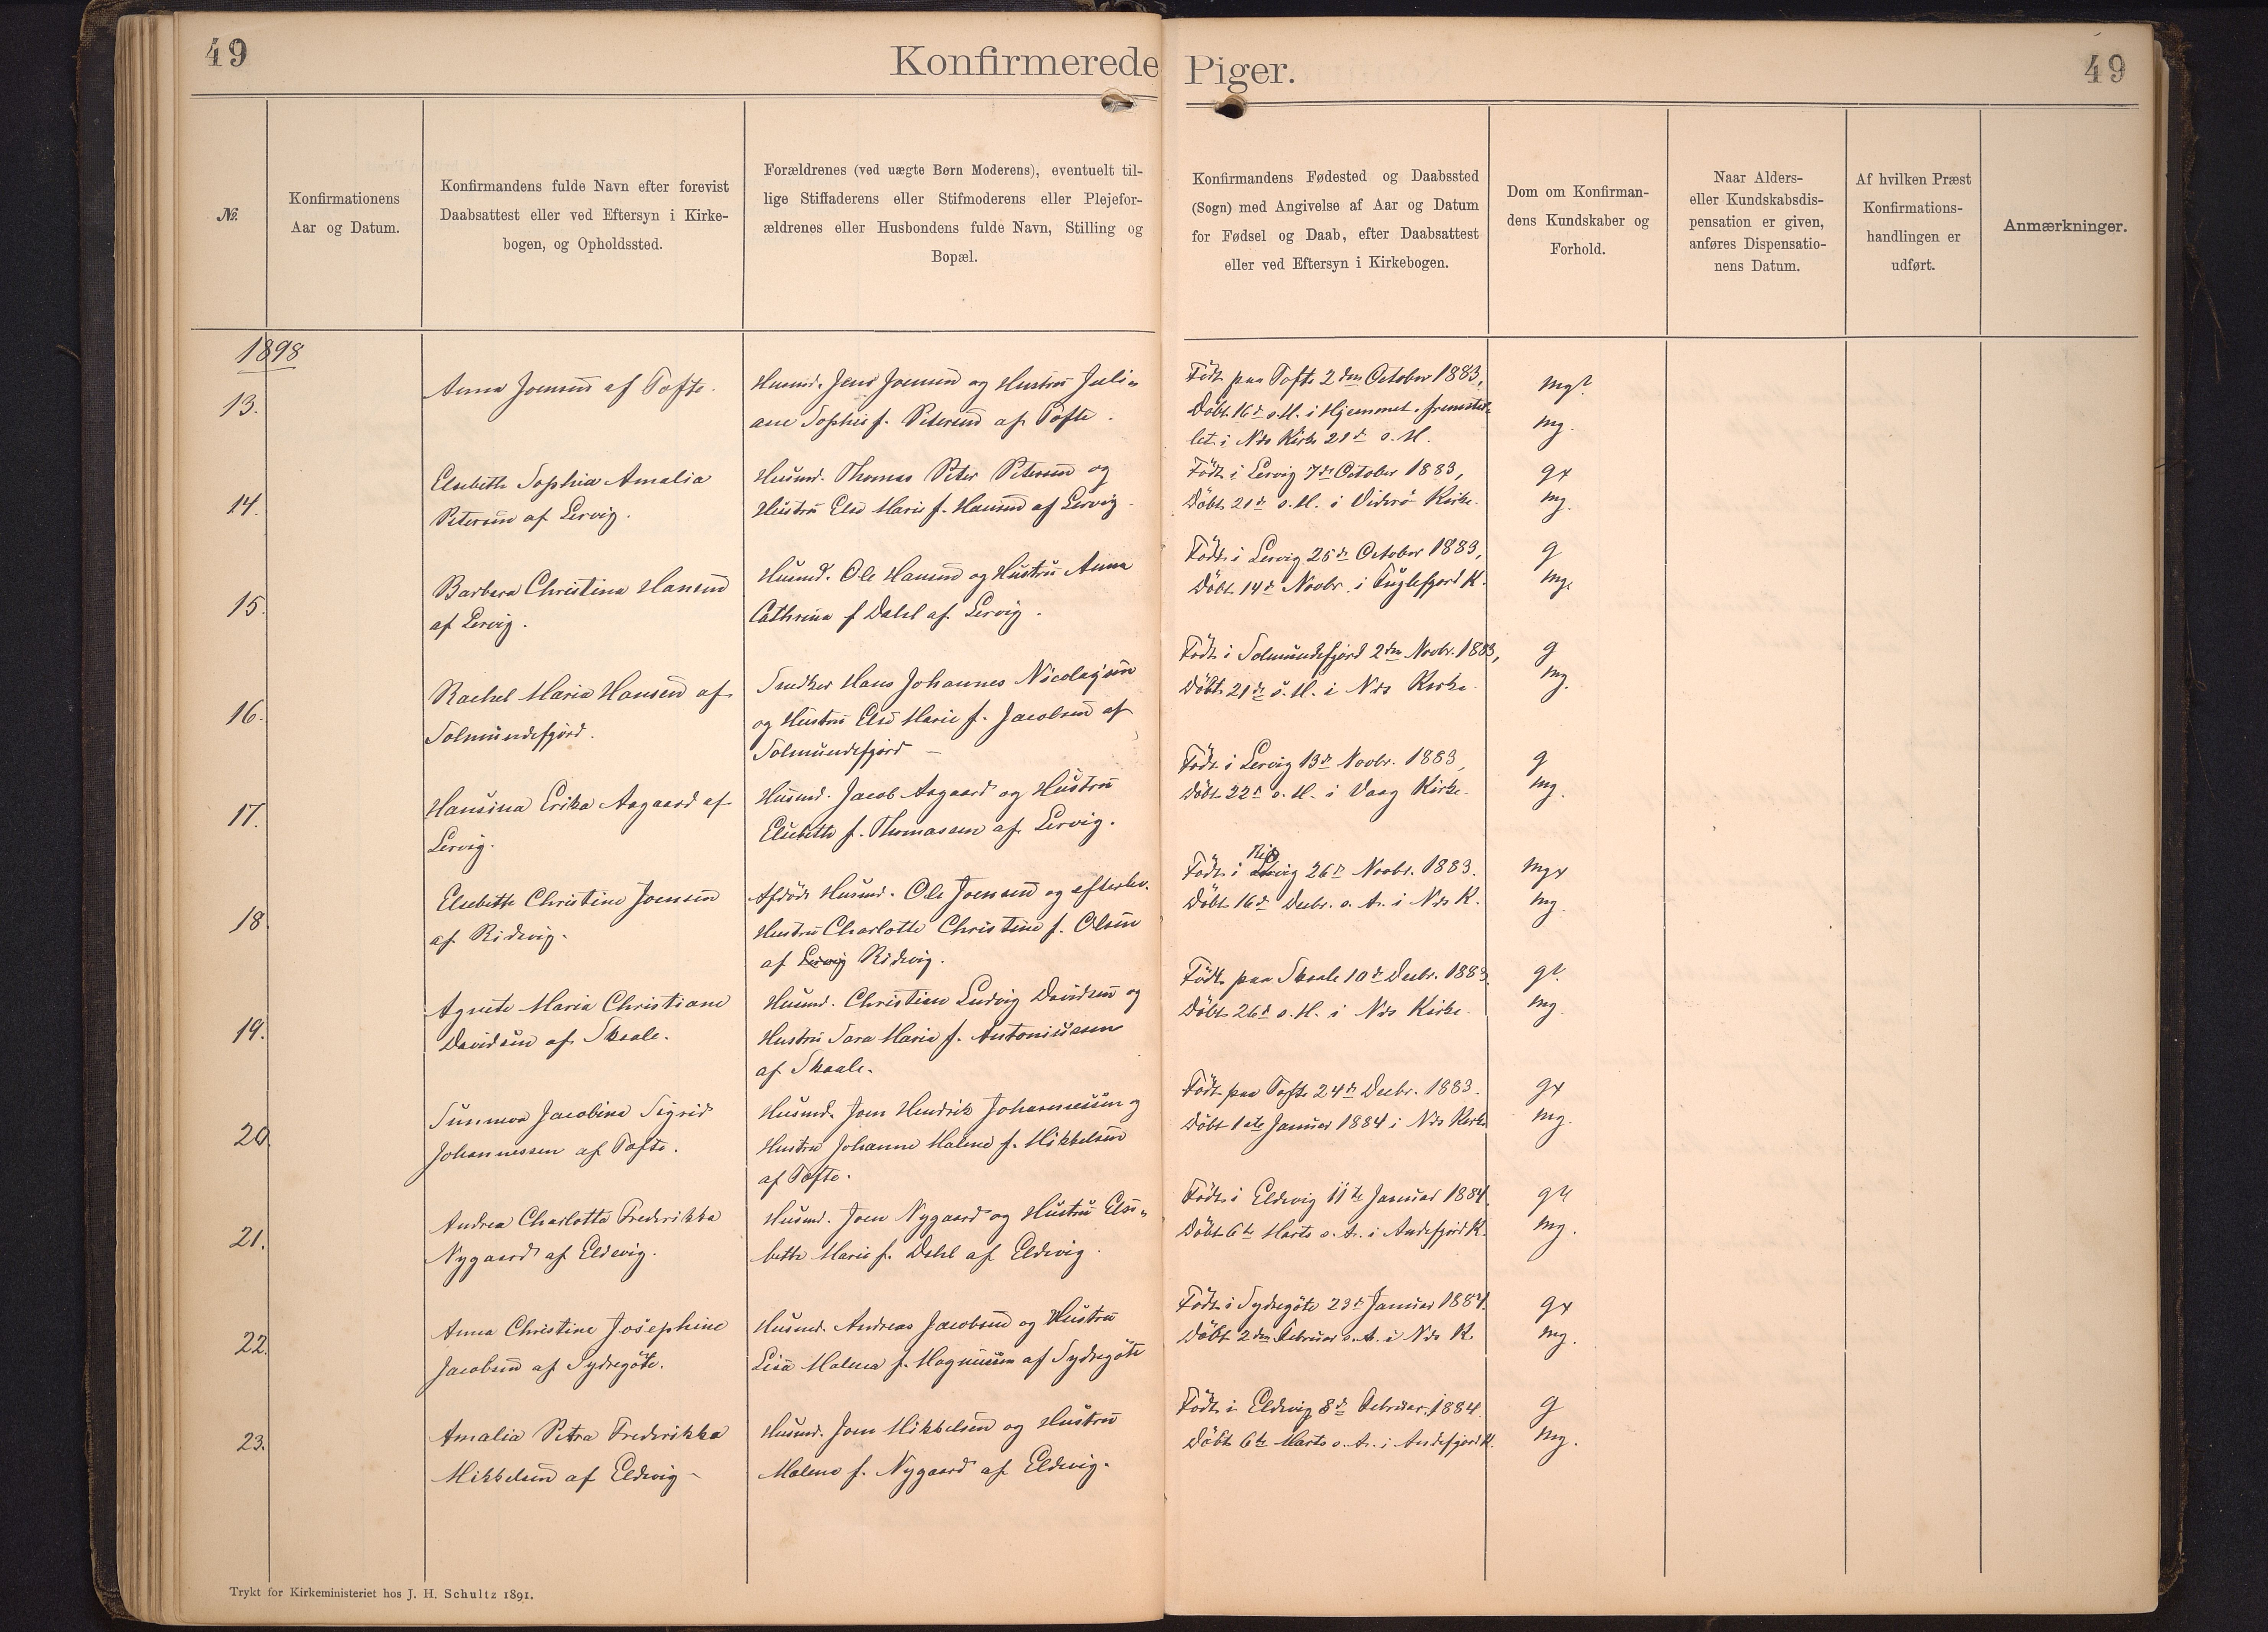 49
Konfirmerede Piger.
49
№.
Konfirmationens
Aar og Datum.
Konfirmandens fulde Navn efter forevist
Daabsattest eller ved Eftersyn i Kirke-
bogen, og Opholdssted.
Forældrenes (ved uægte Børn Moderens), eventuelt til-
lige Stiffaderens eller Stifmoderens eller Plejefor-
ældrenes eller Husbondens fulde Navn, Stilling og
Bopæl.
Konfirmandens Fødested og Daabssted
(Sogn) med Angivelse af Aar og Datum
for Fødsel og Daab, efter Daabsattest
eller ved Eftersyn i Kirkebogen.
Dom om Konfirman-
dens Kundskaber og
Forhold.
Naar Alders-
eller Kundskabsdis-
pensation er given,
anføres Dispensatio-
nens Datum.
Af hvilken Præst
Konfirmations-
handlingen er
udført.
Anmærkninger.
1898
13.
Anna Joensen af Tofte.
Husmd. Jens Joensen og Hustru Juli-
ane Sophie f. Petersen af Tofte.
Födt paa Tofte 2den October 1883,
Döbt 16de s. M. i Hjemmet, fremstil-
let i Nds Kirke 21de s. M.
mg?
mg.
14.
Elsebeth Sophia Amalia
Petersen af Lervig.
Husmd. Thomas Peter Petersen og
Hustru Else Marie f. Hansen af Lervig.
Födt i Lervig 7de October 1883,
Döbt 21de s. M. i Viderö Kirke.
gx
mg.
15.
Barbara Christina Hansen
af Lervig.
Husmd. Ole Hansen og Hustru Anna
Cathrina f. Dahl af Lervig.
Födt i Lervig 25de October 1883,
Döbt 14de Novbr. i Fuglefjord K.
g
mg.
16.
Rachel Maria Hansen af
Solmundefjord.
Snedker Hans Johannes Nicolajsen
og Hustru Else Marie f. Jacobsen af
Solmundefjord
Födt i Solmundefjord 2den Novbr. 1883,
Döbt 21de s. M. i Nds Kirke.
g
mg.
17.
Hansina Erika Aagaard af
Lervig.
Husmd. Jacob Aagaard og Hustru
Elsebeth f. Thomassen af Lervig.
Födt i Lervig 13de Novbr. 1883,
Döbt 22de s. M. i Vaag Kirke.
g
mg.
18.
Elsebeth Christine Joensen
af Ridevig.
Afdöde Husmd. Ole Joensen og efterlev.
Hustru Charlotte Christine f. Olsen
af Lervig Ridevig.
Födt i Lervig 26de Novbr. 1883.
Döbt 16de Decbr. s. A. i Nds K.
mgx
mg.
19.
Agnete Maria Christiane
Davidsen af Skaale.
Husmd. Christian Ludvig Davidsen og
Hustru Sara Maria f. Antoniussen
af Skaale.
Födt paa Skaale 10de Decbr. 1883.
Döbt 26de s. M. i Nds Kirke.
g?
mg.
20.
Sunneva Jacobina Sigrid
Johannessen af Tofte.
Husmd. Joen Hendrik Johannessen og
Hustru Johanne Malene f. Mikkelsen
af Tofte.
Födt paa Tofte 24de Decbr. 1883.
Döbt 1ste Januar 1884 i Nds Kirke
gx
mg.
21.
Andrea Charlotta Frederikka
Nygaard af Eldevig.
Husmd. Joen Nygaard og Hustru Else-
beth Marie f. Dahl af Eldevig.
Födt i Eldevig 11te Januar 1884.
Döbt 6te Marts s. A. i Andefjord K.
mg.
22.
Anna Christine Josephine
Jacobsen af Sydregöte.
Husmd. Andreas Jacobsen og Hustru
Lisa Malena f. Magnussen af Sydregöte
Födt i Sydregöte 23de Januar 1884.
Döbt 2den Februar s. A. i Nds K.
gx
mg.
23.
Amalia Petra Frederikka
Mikkelsen af Eldevig
Husmd. Joen Mikkelsen og Hustru
Malene f. Nygaard af Eldevig.
Födt i Eldevig 8de Februar 1884.
Döbt 6te Marts s. A. i Andefjord K.
g
mg.
Trykt for Kirkeministeriet hos J. H. Schultz 1891.